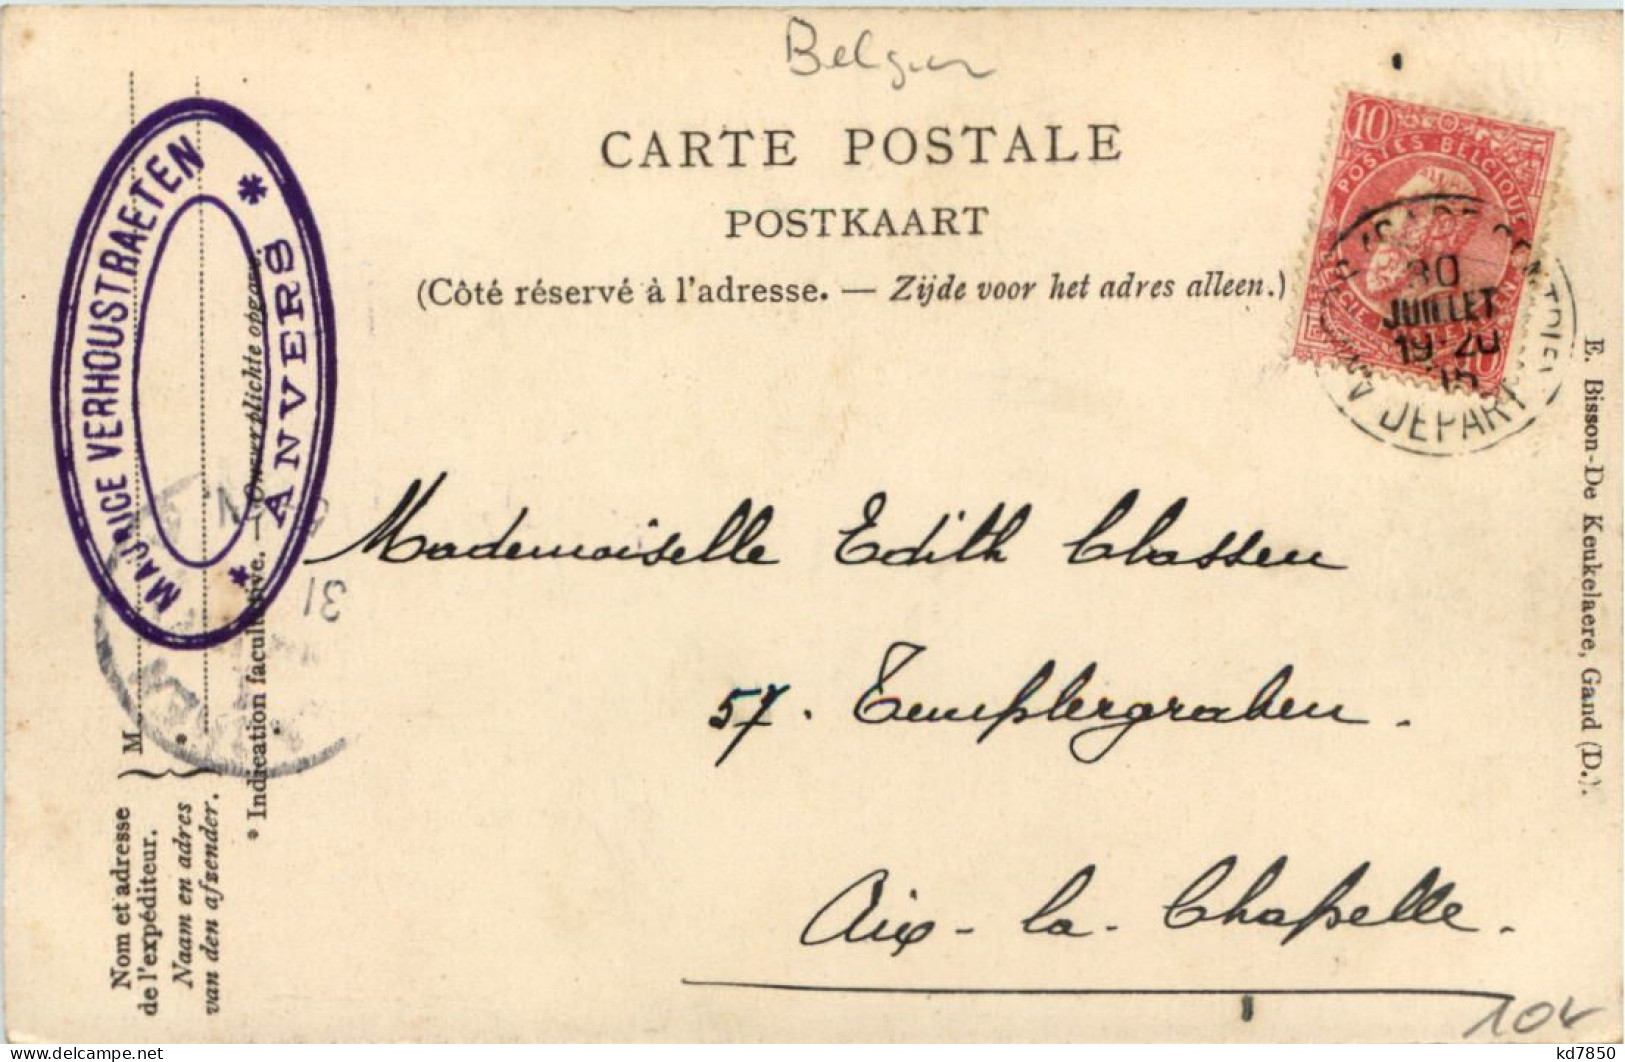 Belgien
CARTE POSTALE
POSTKAART
(Côté réservé à l'adresse. — Zijde voor het adres alleen.)
10
POSTES BELGIQUE
30
JUILLET
19-20
DEPART
MAURICE VERHOUSTRAETEN
* ANVERS *
31
Mademoiselle Edith Classen
57. Templergraben.
Aix-la-Chapelle.
M
*
Nom et adresse
de l'expéditeur.
Naam en adres
van den afzender.
* Indication facultative. — Onverplichte opgave.
E. Bisson-De Keukelaere, Gand (D.).
kd7850